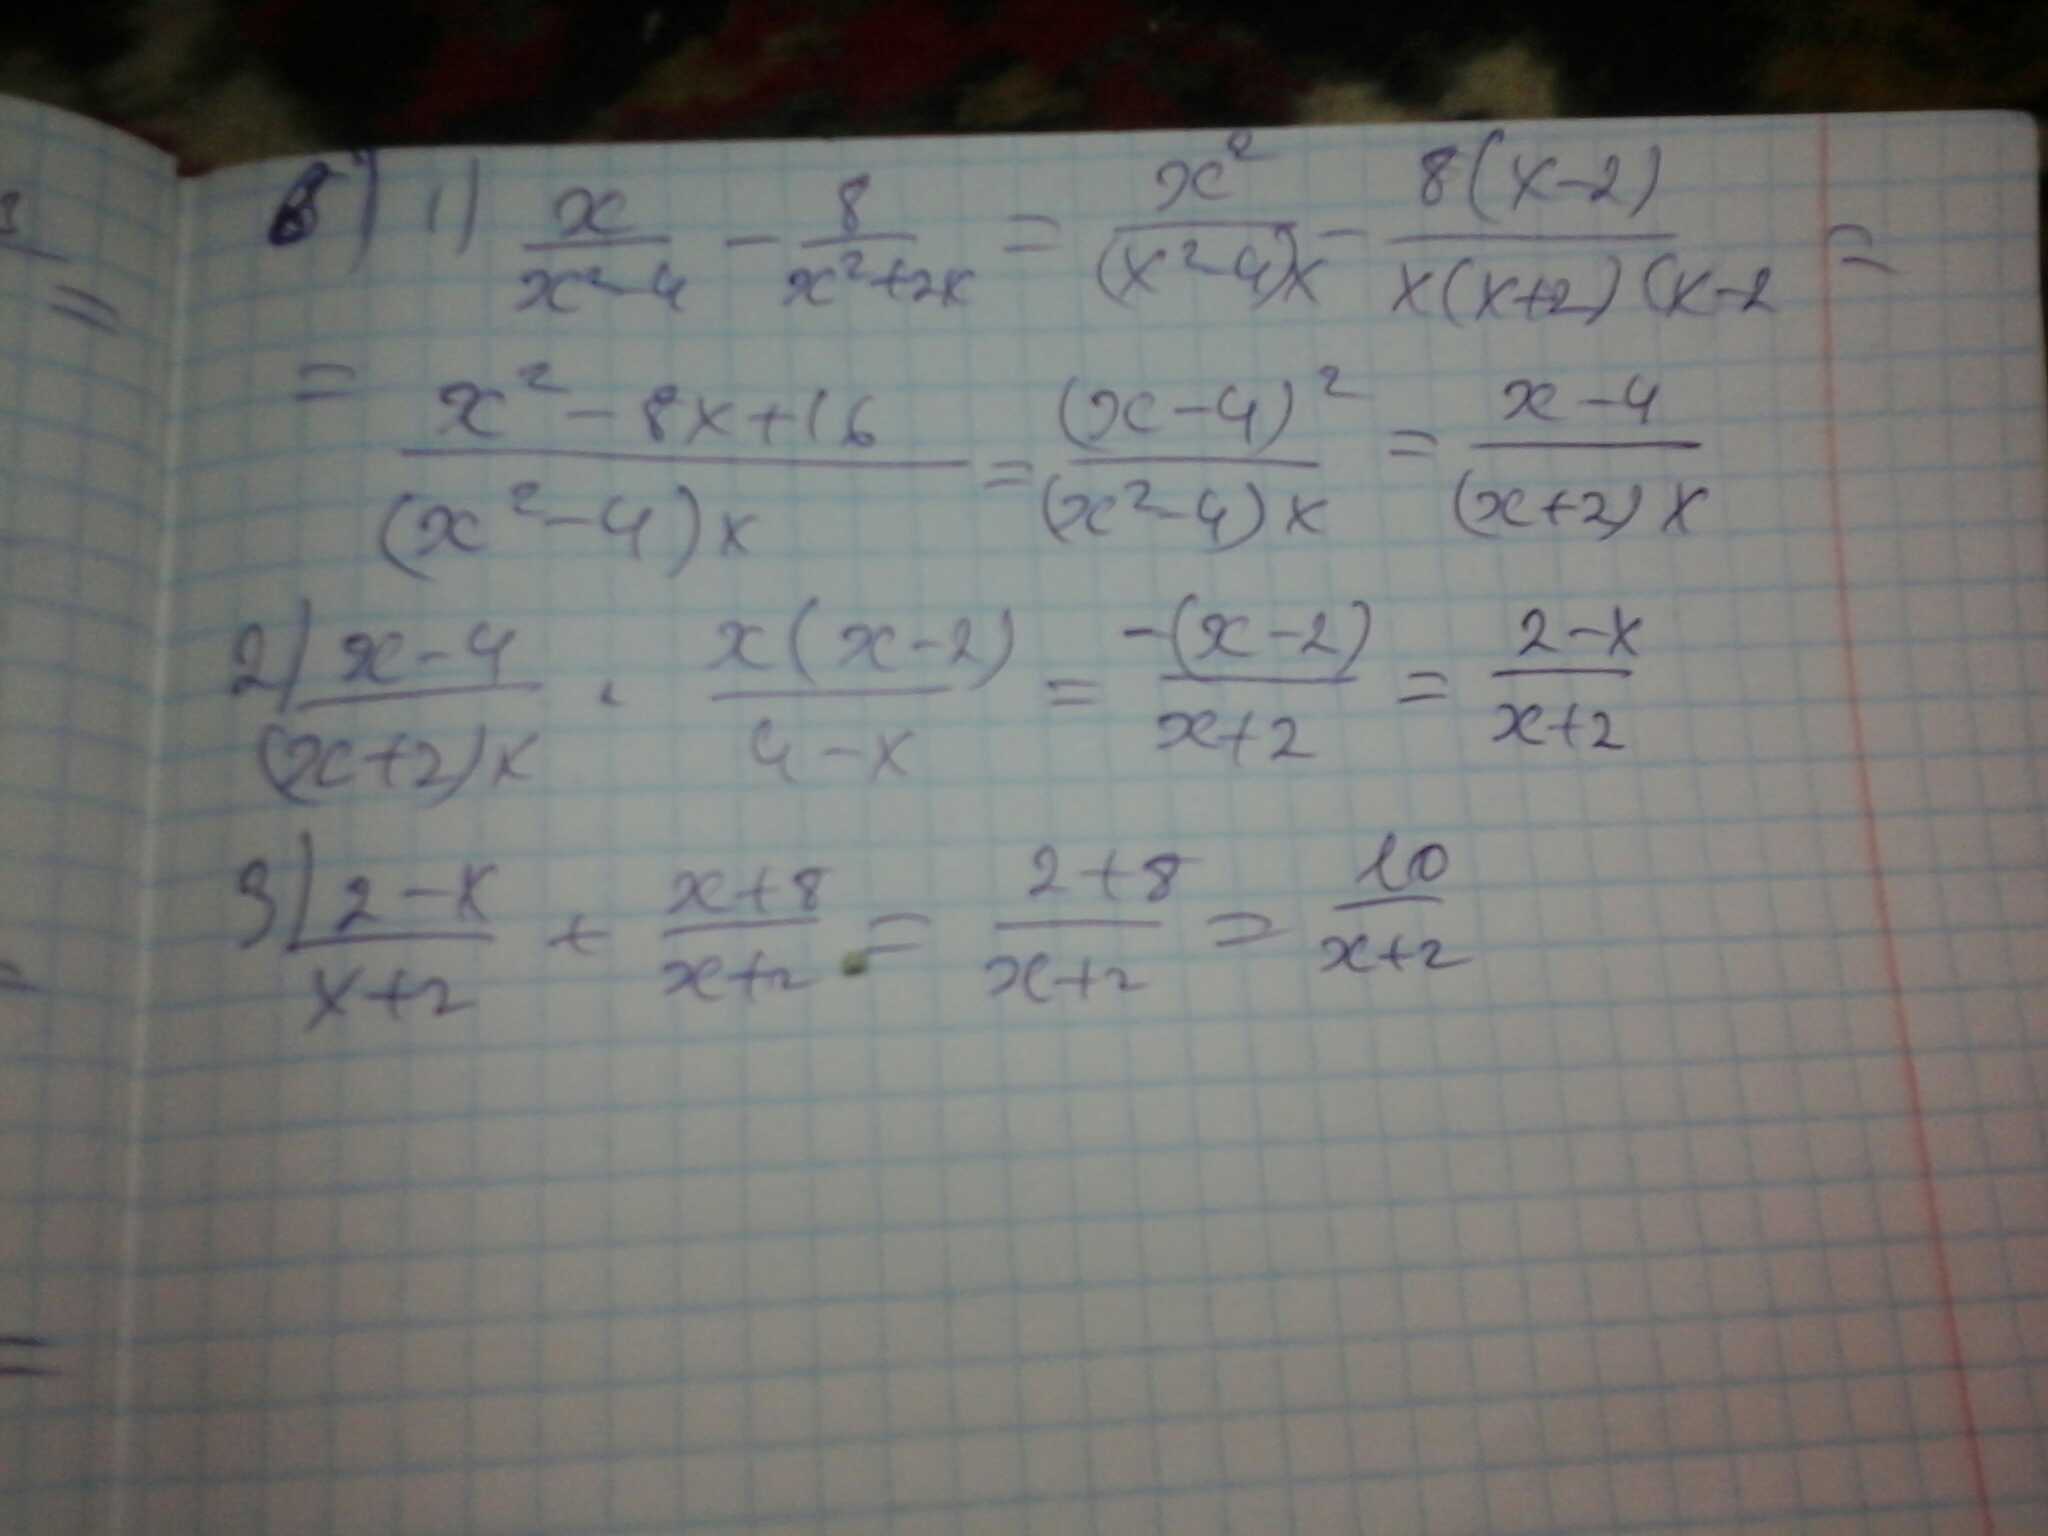 в) 1) x/(x²-4) - 8/(x²+2x) = x²/((x²-4)x) - 8(x-2)/(x(x+2)(x-2) =
= (x²-8x+16)/((x²-4)x) = (x-4)²/((x²-4)x) = (x-4)/((x+2)x)
2) (x-4)/((x+2)x) · x(x-2)/(4-x) = -(x-2)/(x+2) = (2-x)/(x+2)
3) (2-x)/(x+2) + (x+8)/(x+2) = (2+8)/(x+2) = 10/(x+2)